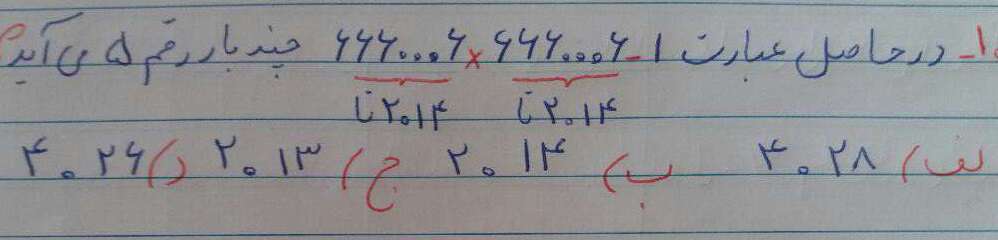 ۱- در حاصل عبارت ۱-۶۶۶۰۰۰۶×۶۶۶۰۰۰۶ چند بار رقم ۵ می آید؟
۲۰۱۴ تا ۲۰۱۴ تا
الف) ۴۰۲۸ ب) ۲۰۱۴ ج) ۲۰۱۳ د) ۴۰۲۶